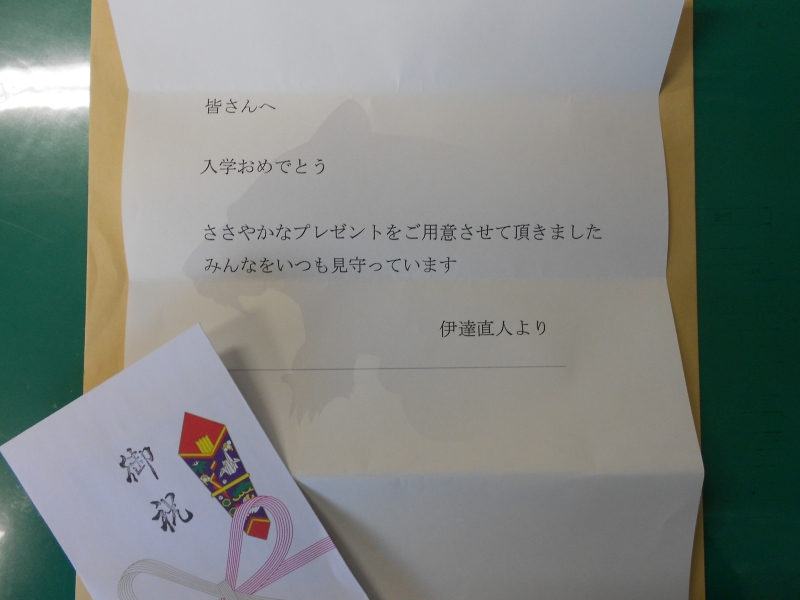 皆さんへ
入学おめでとう
ささやかなプレゼントをご用意させて頂きました
みんなをいつも見守っています
伊達直人より
御祝